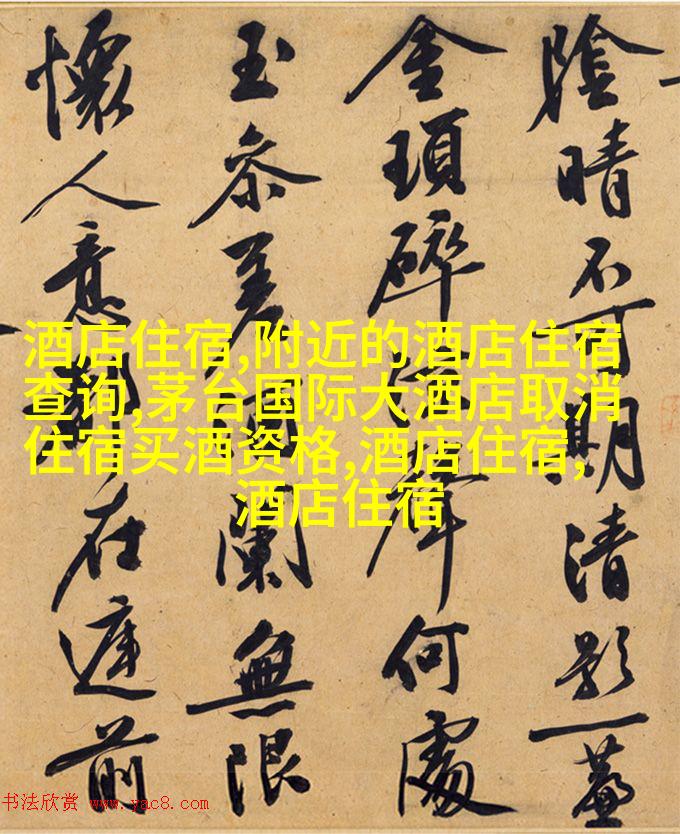 酒店住宿,附近的酒店住宿
查询,茅台国际大酒店取消
住宿买酒资格,酒店住宿,
酒店住宿
陰晴不可期清影一簾
金瑣碎聲何處
玉參差闌無限
懷人意在庭前
书法欣赏 www.yac8.com